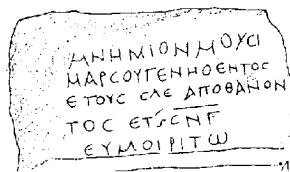 ΜΝΗΜΙΟΝΜΟΥCΙ
ΜΑΡCΟΥΓΕΝΗΘΕΝΤΟC
ΕΤΟΥC CΛΕ ΑΠΟΘΑΝΟΝ
ΤΟC ΕΤSCΝΓ
ΕΥΜΟΙΡΙΤΩ